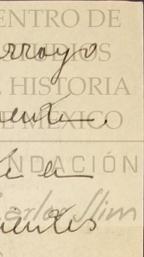 ENTRO DE
rroyo
DIOS
HISTORIA
uente.
E MÉXICO
NDACIÓN
Carlos Slim
uentes